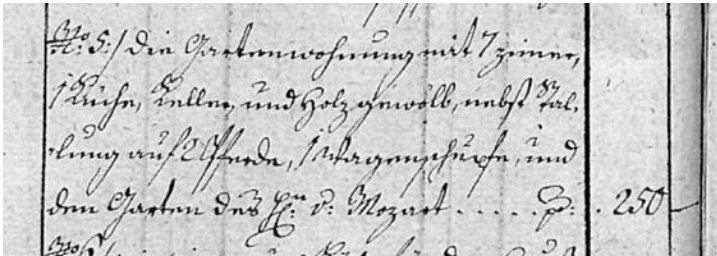 No: 5:/ die Gartenwohnung mit 7 zimer,
1 Küche, Keller, und Holzgewölb, nebst Stal-
lung auf 2 Pferde, 1 Wagenschupfe, und
den Garten des H:n v: Mozart . . . . . p: . 250 –
No 6/